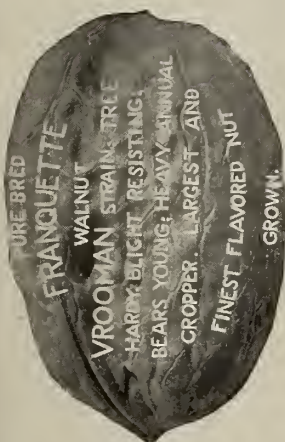 PURE BRED
FRANQUETTE
WALNUT
VROOMAN STRAIN: TREE
HARDY: BLIGHT RESISTING:
BEARS YOUNG: HEAVY ANNUAL
CROPPER. LARGEST AND
FINEST FLAVORED NUT
GROWN.